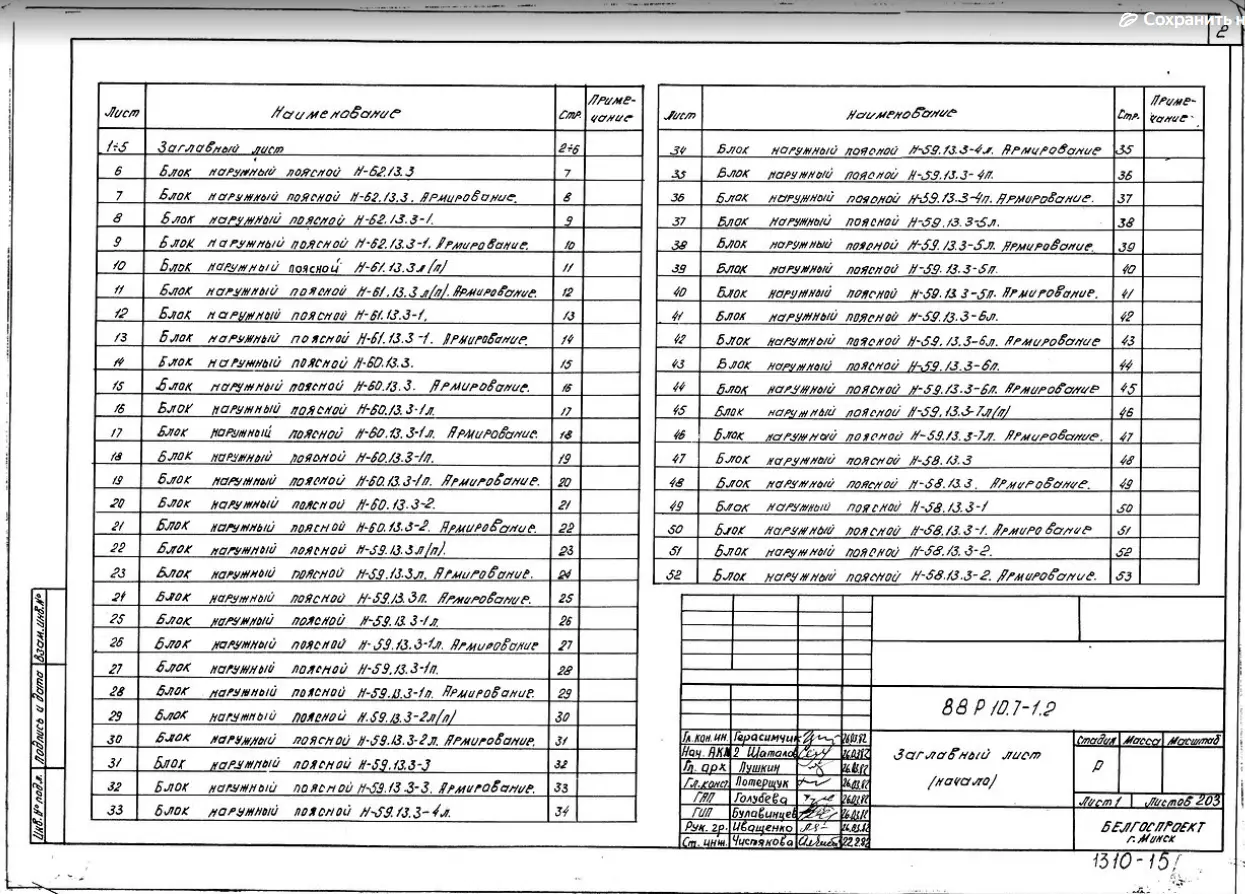 Сохранить н
2
Лист Наименование Стр. Приме-чание
1÷5 Заглавный лист 2÷6
6 Блок наружный поясной Н-62.13.3 7
7 Блок наружный поясной Н-62.13.3. Армирование. 8
8 Блок наружный поясной Н-62.13.3-1. 9
9 Блок наружный поясной Н-62.13.3-1. Армирование. 10
10 Блок наружный поясной Н-61.13.3л/п/ 11
11 Блок наружный поясной Н-61.13.3л/п/. Армирование. 12
12 Блок наружный поясной Н-61.13.3-1. 13
13 Блок наружный поясной Н-61.13.3-1. Армирование. 14
14 Блок наружный поясной Н-60.13.3. 15
15 Блок наружный поясной Н-60.13.3. Армирование. 16
16 Блок наружный поясной Н-60.13.3-1л. 17
17 Блок наружный поясной Н-60.13.3-1л. Армирование. 18
18 Блок наружный поясной Н-60.13.3-1п. 19
19 Блок наружный поясной Н-60.13.3-1п. Армирование. 20
20 Блок наружный поясной Н-60.13.3-2. 21
21 Блок наружный поясной Н-60.13.3-2. Армирование. 22
22 Блок наружный поясной Н-59.13.3л/п/. 23
23 Блок наружный поясной Н-59.13.3л. Армирование. 24
24 Блок наружный поясной Н-59.13.3п. Армирование. 25
25 Блок наружный поясной Н-59.13.3-1л. 26
26 Блок наружный поясной Н-59.13.3-1л. Армирование 27
27 Блок наружный поясной Н-59.13.3-1п. 28
28 Блок наружный поясной Н-59.13.3-1п. Армирование. 29
29 Блок наружный поясной Н.59.13.3-2л/п/ 30
30 Блок наружный поясной Н-59.13.3-2л. Армирование. 31
31 Блок наружный поясной Н-59.13.3-3 32
32 Блок наружный поясной Н-59.13.3-3. Армирование. 33
33 Блок наружный поясной Н-59.13.3-4л. 34
Лист Наименование Стр. Приме-чание
34 Блок наружный поясной Н-59.13.3-4л. Армирование 35
35 Блок наружный поясной Н-59.13.3-4п. 36
36 Блок наружный поясной Н-59.13.3-4п. Армирование. 37
37 Блок наружный поясной Н-59.13.3-5л. 38
38 Блок наружный поясной Н-59.13.3-5л. Армирование. 39
39 Блок наружный поясной Н-59.13.3-5п. 40
40 Блок наружный поясной Н-59.13.3-5п. Армирование. 41
41 Блок наружный поясной Н-59.13.3-6л. 42
42 Блок наружный поясной Н-59.13.3-6л. Армирование 43
43 Блок наружный поясной Н-59.13.3-6п. 44
44 Блок наружный поясной Н-59.13.3-6п. Армирование 45
45 Блок наружный поясной Н-59.13.3-7л/п/ 46
46 Блок наружный поясной Н-59.13.3-7л. Армирование. 47
47 Блок наружный поясной Н-58.13.3 48
48 Блок наружный поясной Н-58.13.3. Армирование. 49
49 Блок наружный поясной Н-58.13.3-1 50
50 Блок наружный поясной Н-58.13.3-1. Армирование 51
51 Блок наружный поясной Н-58.13.3-2. 52
52 Блок наружный поясной Н-58.13.3-2. Армирование. 53
Инв.№ подл. Подпись и дата Взам.инв.№
88Р 10.7-1.2
Гл.кон.ин. Герасимчик 26.03.82
Нач. АКМ 2 Шаталов 26.03.82
Гл. арх Пушкин 26.03.82
Гл.конст Потерщук 26.03.82
ГАП Голубева 26.03.82
ГИП Булавинцев 26.03.82
Рук. гр. Иващенко 26.03.82
Ст. инж. Чистякова 22.2.82
Заглавный лист
/начало/
Стадия Масса Масштаб
Р
Лист 1 Листов 203
БЕЛГОСПРОЕКТ
г. Минск
1310-15/